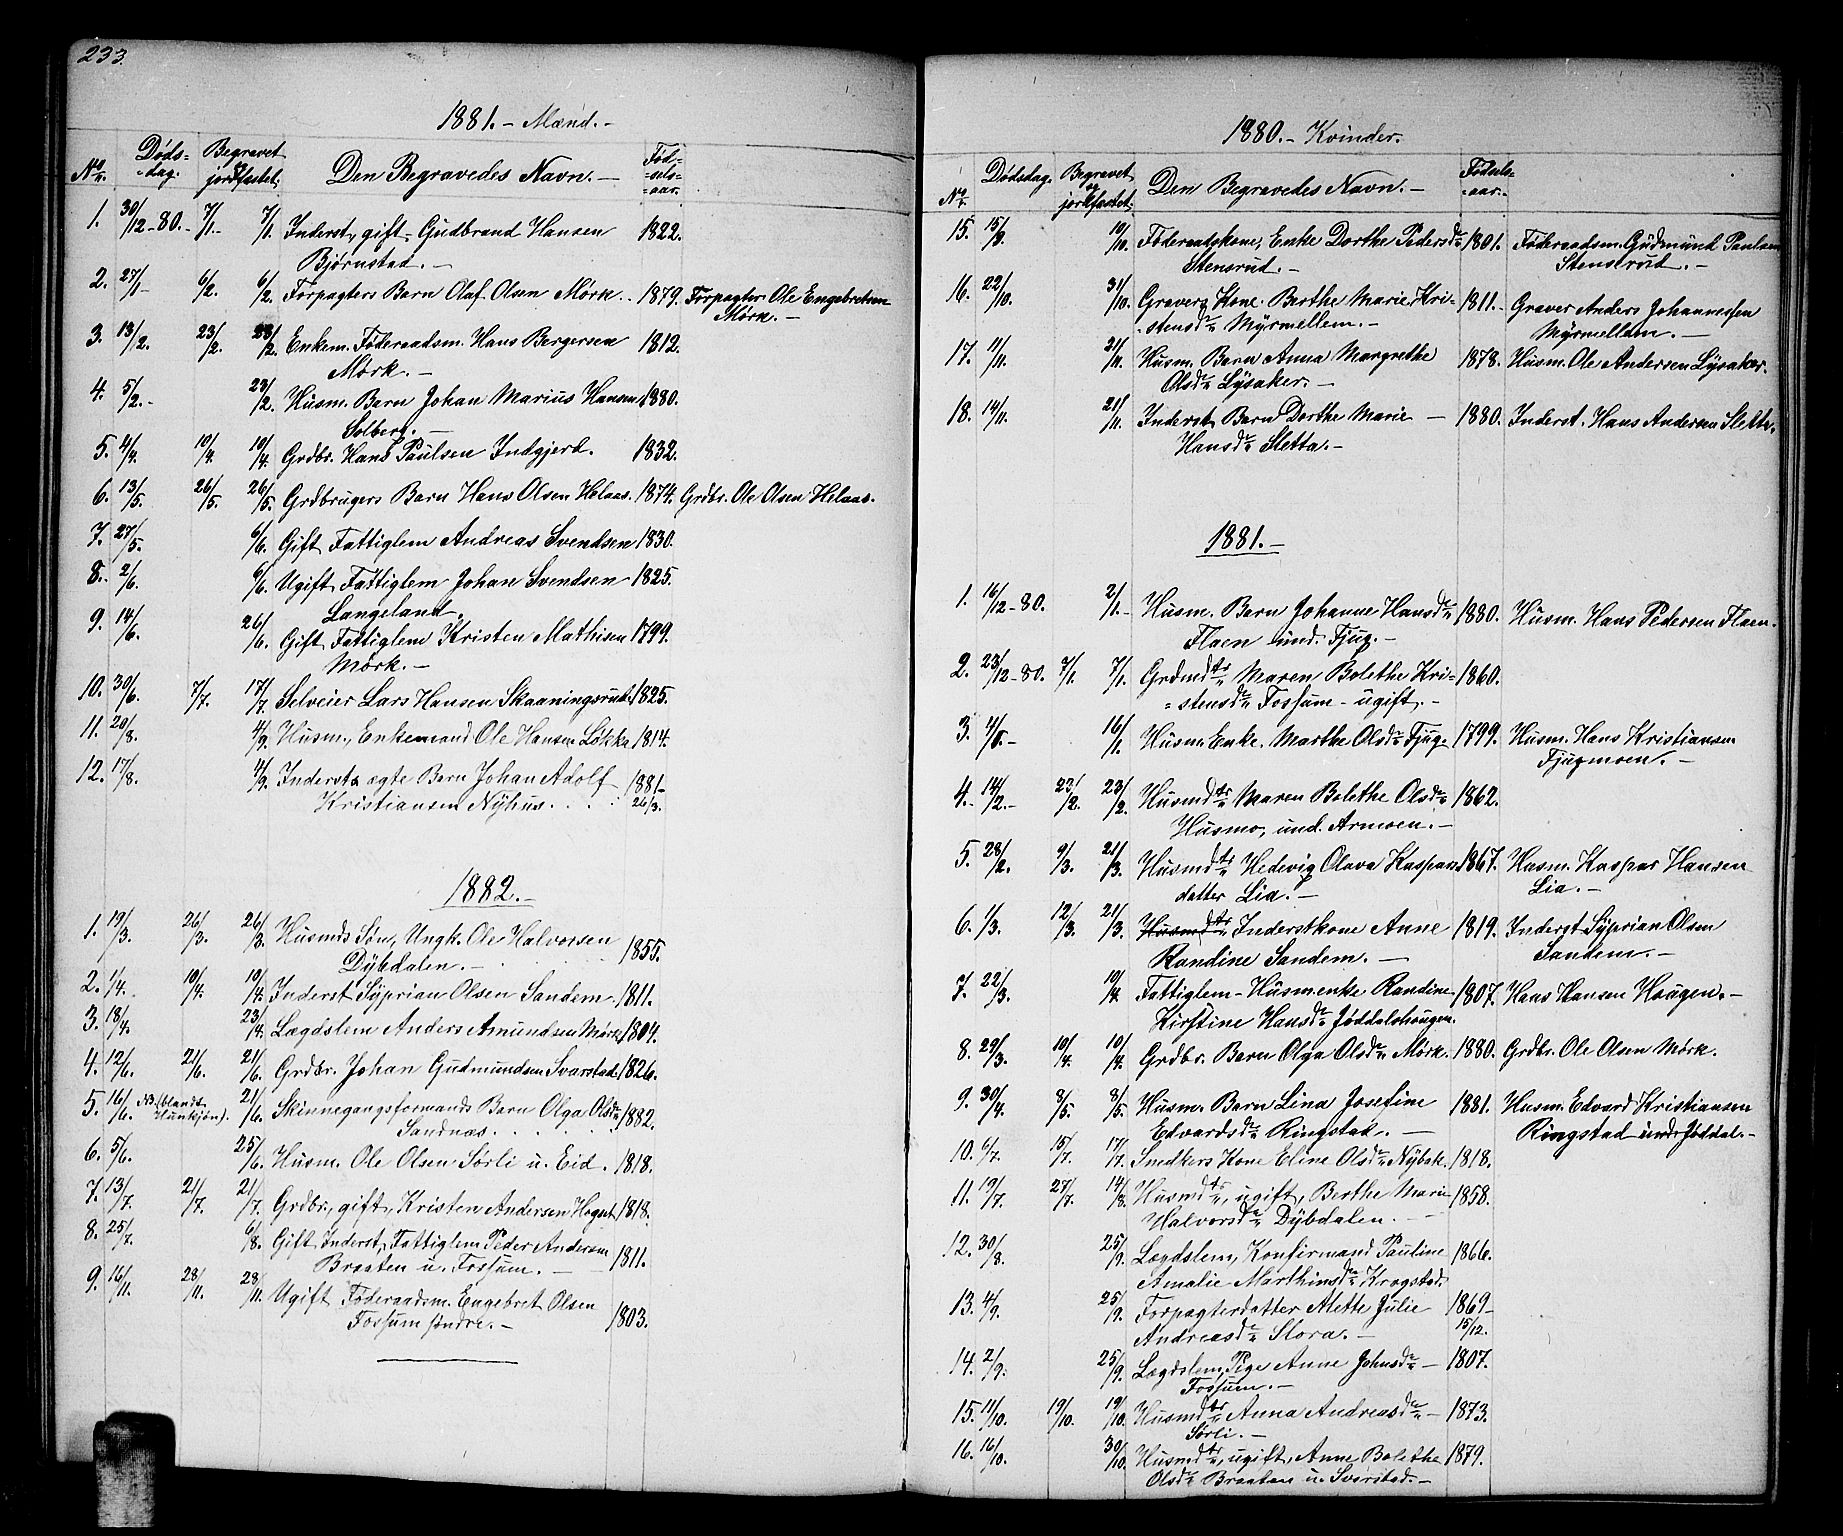 233.
1881. - Mænd. -
No. Døds-dag. Begravet jordfæstet. Den Begravedes Navn. - Fød-sels-aar.
1. 30/12-80. 7/1.- 7/1. Inderst, gift, Gudbrand Hansen 1822.
Bjørnstad. -
2. 27/1- 6/2. 6/2. Forpagters Barn Olaf Olsen Mørk. 1879. Forpagter Ole Engebretsen
Mørk. -
3. 13/2. 23/2. 23/2. Enkem. Føderaadsm. Hans Bergersen 1812.
Mørk. -
4. 5/2.- 23/2. Husm. Barn Johan Marius Hansen 1880.
Solberg. -
5. 4/4. 10/4. 10/4. Grdbr. Hans Paulsen Indgjerd. 1832.
6. 13/5. 26/5. 26/5. Grdbrugers Barn Hans Olsen Helaas. 1874. Grdbr. Ole Olsen Helaas.
7. 27/5. 6/6. Gift Fattiglem Andreas Svendsen 1830.
8. 2/6. 6/6. Ugift Fattiglem Johan Svendsen 1825.
Langeland.
9. 14/6. 26/6. Gift Fattiglem Kristen Mathisen 1799.
Mørk. -
10. 30/6. 7/7. 17/7. Selveier Lars Hansen Skaaningsrud 1825.
11. 20/8. 4/9. Husm., Enkemand Ole Hansen Løkka 1814.
12. 17/8. 4/9. Indersts ægte Barn Johan Adolf 1881-
Kristiansen Nyhus. . . . 26/3.
1882. -
1. 19/3. 26/3. 26/3. Husmds Søn, Ungk. Ole Halvorsen 1855.
Dybdalen. -
2. 1/4. 10/4. 10/4. Inderst Syprian Olsen Sandem. 1811.
3. 18/4. 23/4. Lægdslem Anders Amundsen Mørk 1804.
4. 12/6. 21/6. 21/6. Grdbr. Johan Gudmundsen Svarstad 1826.
5. 16/6. NB. (blandt Hunkjøn). 21/6. Skinnegangsformands Barn Olga Olsdr 1882.
Sandnæs. . . . .
6. 5/6. 25/6. Husm. Ole Olsen Sørli u. Eid. 1818.
7. 13/7. 21/7. 21/7. Grdbr., gift, Kristen Andersen Hogset 1818.
8. 25/7. 6/8. Gift Inderst, Fattiglem Peder Andersen
Braaten u. Fossum. - 1811.
9. 16/11. 28/11. 28/11. Ugift Føderaadsm. Engebret Olsen
Fossum søndre. - 1803.
1880. - Kvinder.
No. Dødsdag. Begravet og jordfæstet. Den Begravedes Navn. - Fødsels-aar.
15. 15/9. 10/10. Føderaadskone, Enke Dorthe Pedersdr 1801. Føderaadsm. Gudmund Paulsen
Stensrud. - Stensrud. -
16. 22/10. 31/10. Gravers Kone Berthe Marie Kri- 1811. - Graver Anders Johannesen
-stensdr Myrmellem. - Myrmellem. -
17. 11/11. 21/11. Husm. Barn Anna Margrethe 1878. Husm. Ole Andersen Lysaker.
Olsdr Lysaker. -
18. 14/11. 21/11. Inderst Barn Dorthe Marie - 1880. Inderst. Hans Andersen Sletta.
Hansdr Sletta. -
1881. -
1. 16/12-80. 2/1.- Husm. Barn Johanne Hansdr 1880. Husm. Hans Pedersen Flaen.
Flaen und. Tjug. -
2. 23/12-80. 7/1. 7/1. Grdmdtr Maren Bolethe Kri- 1860.
-stensdr Fossum - ugift. -
3. 16/1. Husm. Enke. Marthe Olsdr Tjug. 1799. Husm. Hans Kristiansen
Tjugmoen. -
4. 14/2.- 23/2. 23/2. Husmdtr Maren Bolethe Olsdr 1862.
Husmo, und. Armoen. -
5. 28/2. 9/3. 21/3. Husmdtr Hedevig Olava Kaspars 1867. Husm. Kaspar Hansen
datter Lia. - Lia. -
6. 1/3. 12/3. 21/3. Husmdtr Inderstkone Anne 1819. Inderst Syprian Olsen
Randine Sandem. - Sandem. -
7. 22/3. 10/4. Fattiglem - Husmenke Randine 1807. Hans Hansen Hougen. -
Kirstine Hansdr Jøddalshougen.
8. 29/3. 10/4. 10/4. Grdbr. Barn Olga Olsdr Mørk. 1880. Grdbr. Ole Olsen Mørk.
9. 30/4. 8/5. 8/5. Husm. Barn Lina Josefine 1881. Husm. Edvard Kristiansen
Edvardsdr Ringstad. - Ringstad under Jøddal. -
10. 6/7. 15/7. 17/7. Snedkers Kone Eline Olsdr Nybak. 1818.
11. 19/7. 27/7. 14/8. Husmdtr, ugift, Berthe Marie 1858.
Halvorsdr Dybdalen. -
12. 30/8. 25/9. Lægdslem, Konfirmand Pauline 1866.
Amalie Marthinsdr Krogstad.
13. 4/9. 25/9. Forpagterdatter Alette Julie 1869-
Andreasdr Slora. - 15/12.
14. 2/9. 25/9. Lægdslem, Pige Anne Johnsdr - 1807.
Fossum. -
15. 11/10. 19/10. 19/10. Husmdtr Anna Andreasdr - 1873.
Sørli. -
16. 16/10. 30/10. Husmdtr, ugift, Anne Bolethe 1879.
Olsdr Braaten u. Svarstad. -